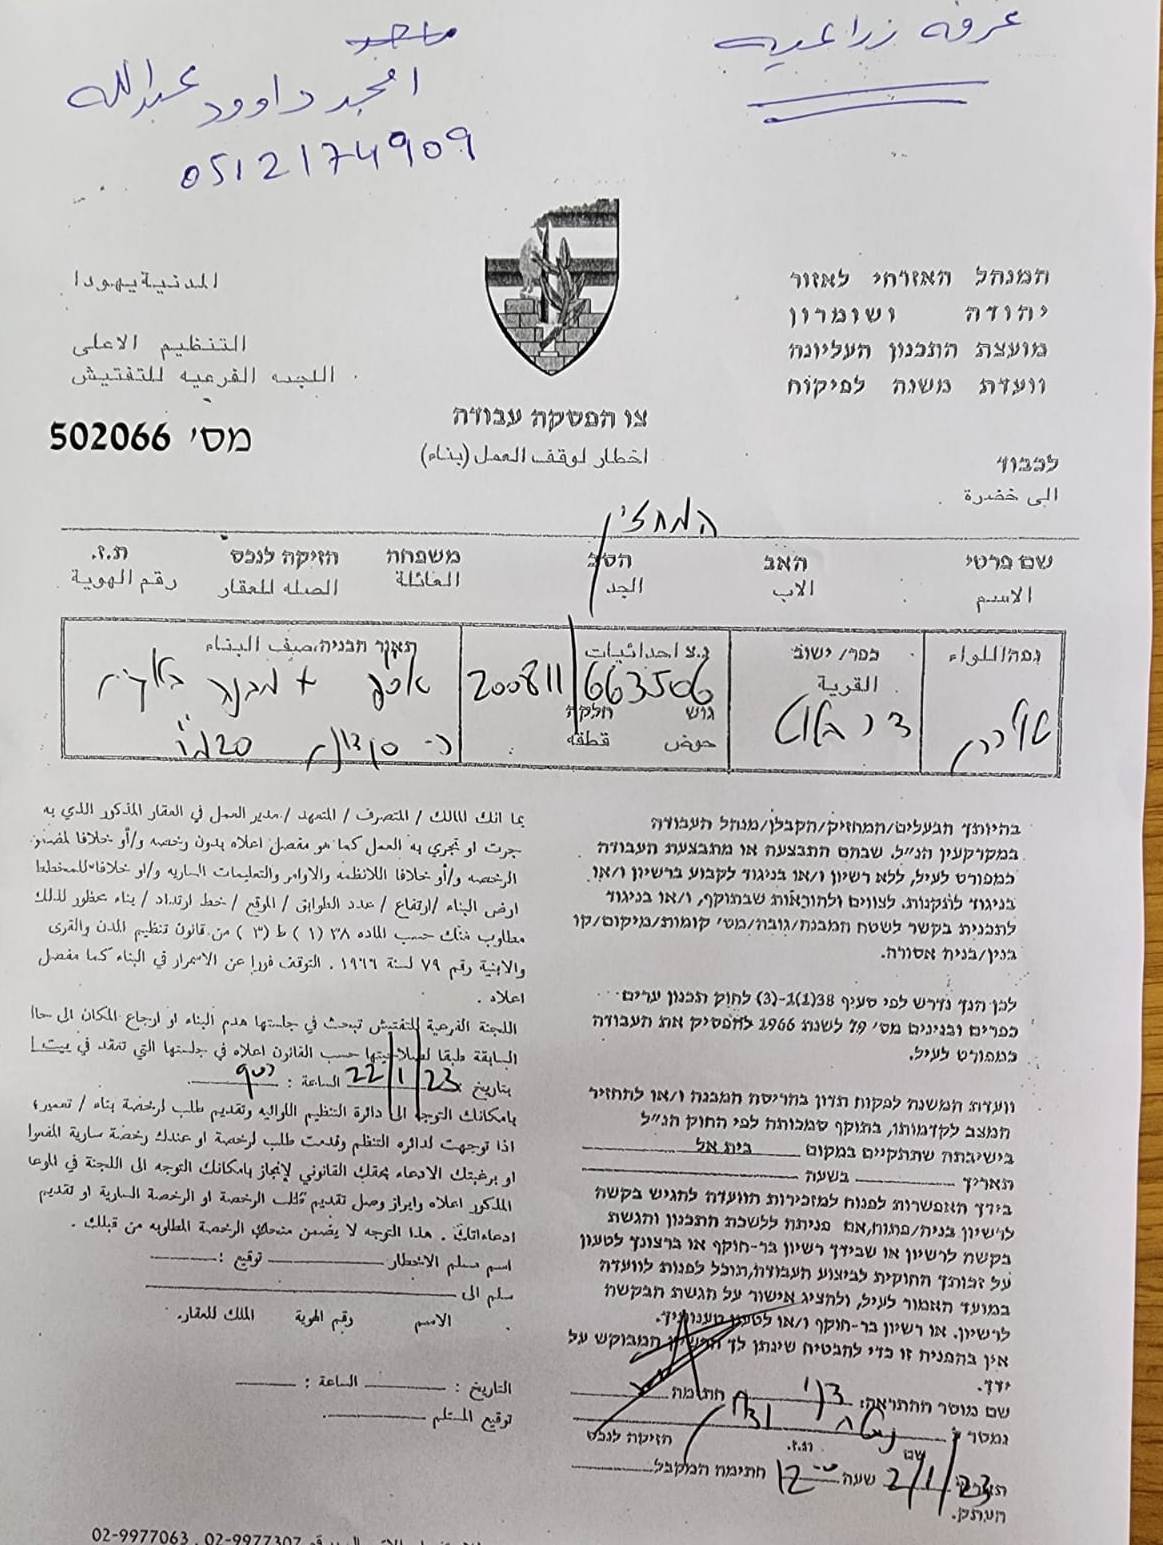 غرفه زراعيه
ماجد
امجد داوود عبدالله
0512174909
המנהל האזרחי לאזור
יהודה ושומרון
מועצת התכנון העליונה
וועדת משנה לפיקוח
المدنية يهودا
التنظيم الاعلى
اللجنه الفرعيه للتفتيش
צו הפסקה עבודה
اخطار لوقف العمل (بناء)
מס' 502066
לכבוד
الى حضرة
המחזיק
שם פרטי האב הסב משפחה חזיקה לנכס ת.ז.
الاسم الاب الجد العائلة الصله للعقار رقم الهوية
נפה/اللواء כפר/ישוב נ.צ احداثيات תאור הבניה،صيف البناء
القرية
200811 663506
גוש חלקה
حوض قطقه
בהיותך הבעלים/המחזיק/הקבלן/מנהל העבודה
במקרקעין הנ"ל. שבהם התבצעה או מתבצעת העבודה
כמפורט לעיל, ללא רשיון ו/או בניגוד לקבוע ברשיון ו/או
בניגוד לתקנות. לצווים ולהוראות שבתוקף, ו/או בניגוד
לתכנית בקשר לשטח המבנה/גובה/מס' קומות/מיקום/קו
בנין/בניה אסורה.
לכן הנך נדרש לפי סעיף 38(1)1-(3) לחוק תכנון ערים
כפרים ובנינים מס' 79 לשנת 1966 להפסיק את העבודה
כמפורט לעיל.
וועדת המשנה לפקוח תדון בהריסת המבנה ו/או להחזיר
המצב לקדמותו, בתוקף סמכותה לפי החוק הנ"ל
בישיבתה שתתקיים במקום בית אל
תאריך בשעה
בידך האפשרות לפנות למזכירות הוועדה להגיש בקשה
לרשיון בניה/פתוח,אם פניתה ללשכת התכנון והגשת
בקשה לרשיון או שבידך רשיון בר-חוקף או ברצונך לטעון
על זכותך החוקית לביצוע העבודה,תוכל לפנות לוועדה
במועד האמור לעיל, ולהציג אישור על הגשת הבקשה
לרשיון. או רשיון בר-חוקף ו/או לטעון טענותיך.
אין בהפניה זו כדי להבטיח שינתן לך הרשיון המבוקש על
ידך.
שם מוסר ההתראה: חתימה
נמסר ל
שם ת.ז. חזיקה לנכס
תאריך 2/1/23 שעה 12 00 חתימה המקבל
העתק.
بما انك المالك / المتصرف / المتعهد / مدير العمل في العقار المذكور الذي به
جرت او تجري به العمل كما هو مفصل اعلاه بدون رخصه و/أو خلافا لمضمون
الرخصه و/أو خلافا للانظمه والاوامر والتعليمات الساريه و/او خلافا للمخطط
ارض البناء /ارتفاع / عدد الطوابق / الموقع / خط ارتداد / بناء محظور لذلك
مطلوب منك حسب الماده ٣٨ (١) ط (٣) من قانون تنظيم المدن والقرى
والابنية رقم ٧٩ لسنة ١٩٦٦ . التوقف فورا عن الاستمرار في البناء كما مفصل
اعلاه .
اللجنة الفرعية للتفتيش تبحث في جلستها هدم البناء او ارجاع المكان الى حالته
السابقة طبقا لصلاحيتها حسب القانون اعلاه في جلستها التي تنعقد في بيت ا
بتاريخ : 22/1/23 الساعة : 900
بامكانك التوجه الى دائرة التنظيم اللوائيه وتقديم طلب لرخصة بناء / تعمير؛
اذا توجهت لدائره التنظم وقدمت طلب لرخصة او عندك رخصة سارية المفعول
او برغبتك الادعاء بحقك القانوني لإنجاز بامكانك التوجه الى اللجنة في الموعد
المذكور اعلاه وابراز وصل تقديم طلب الرخصة او الرخصة السارية او تقديم
ادعاءاتك . هذا التوجه لا يضمن منحك الرخصة المطلوبه من قبلك .
اسم مسلم الاخطار توقيع :
سلم الى
الاسم رقم الهوية الملك للعقار.
التاريخ : الساعة :
توقيع المستلم
02-9977063 , 02-9977307